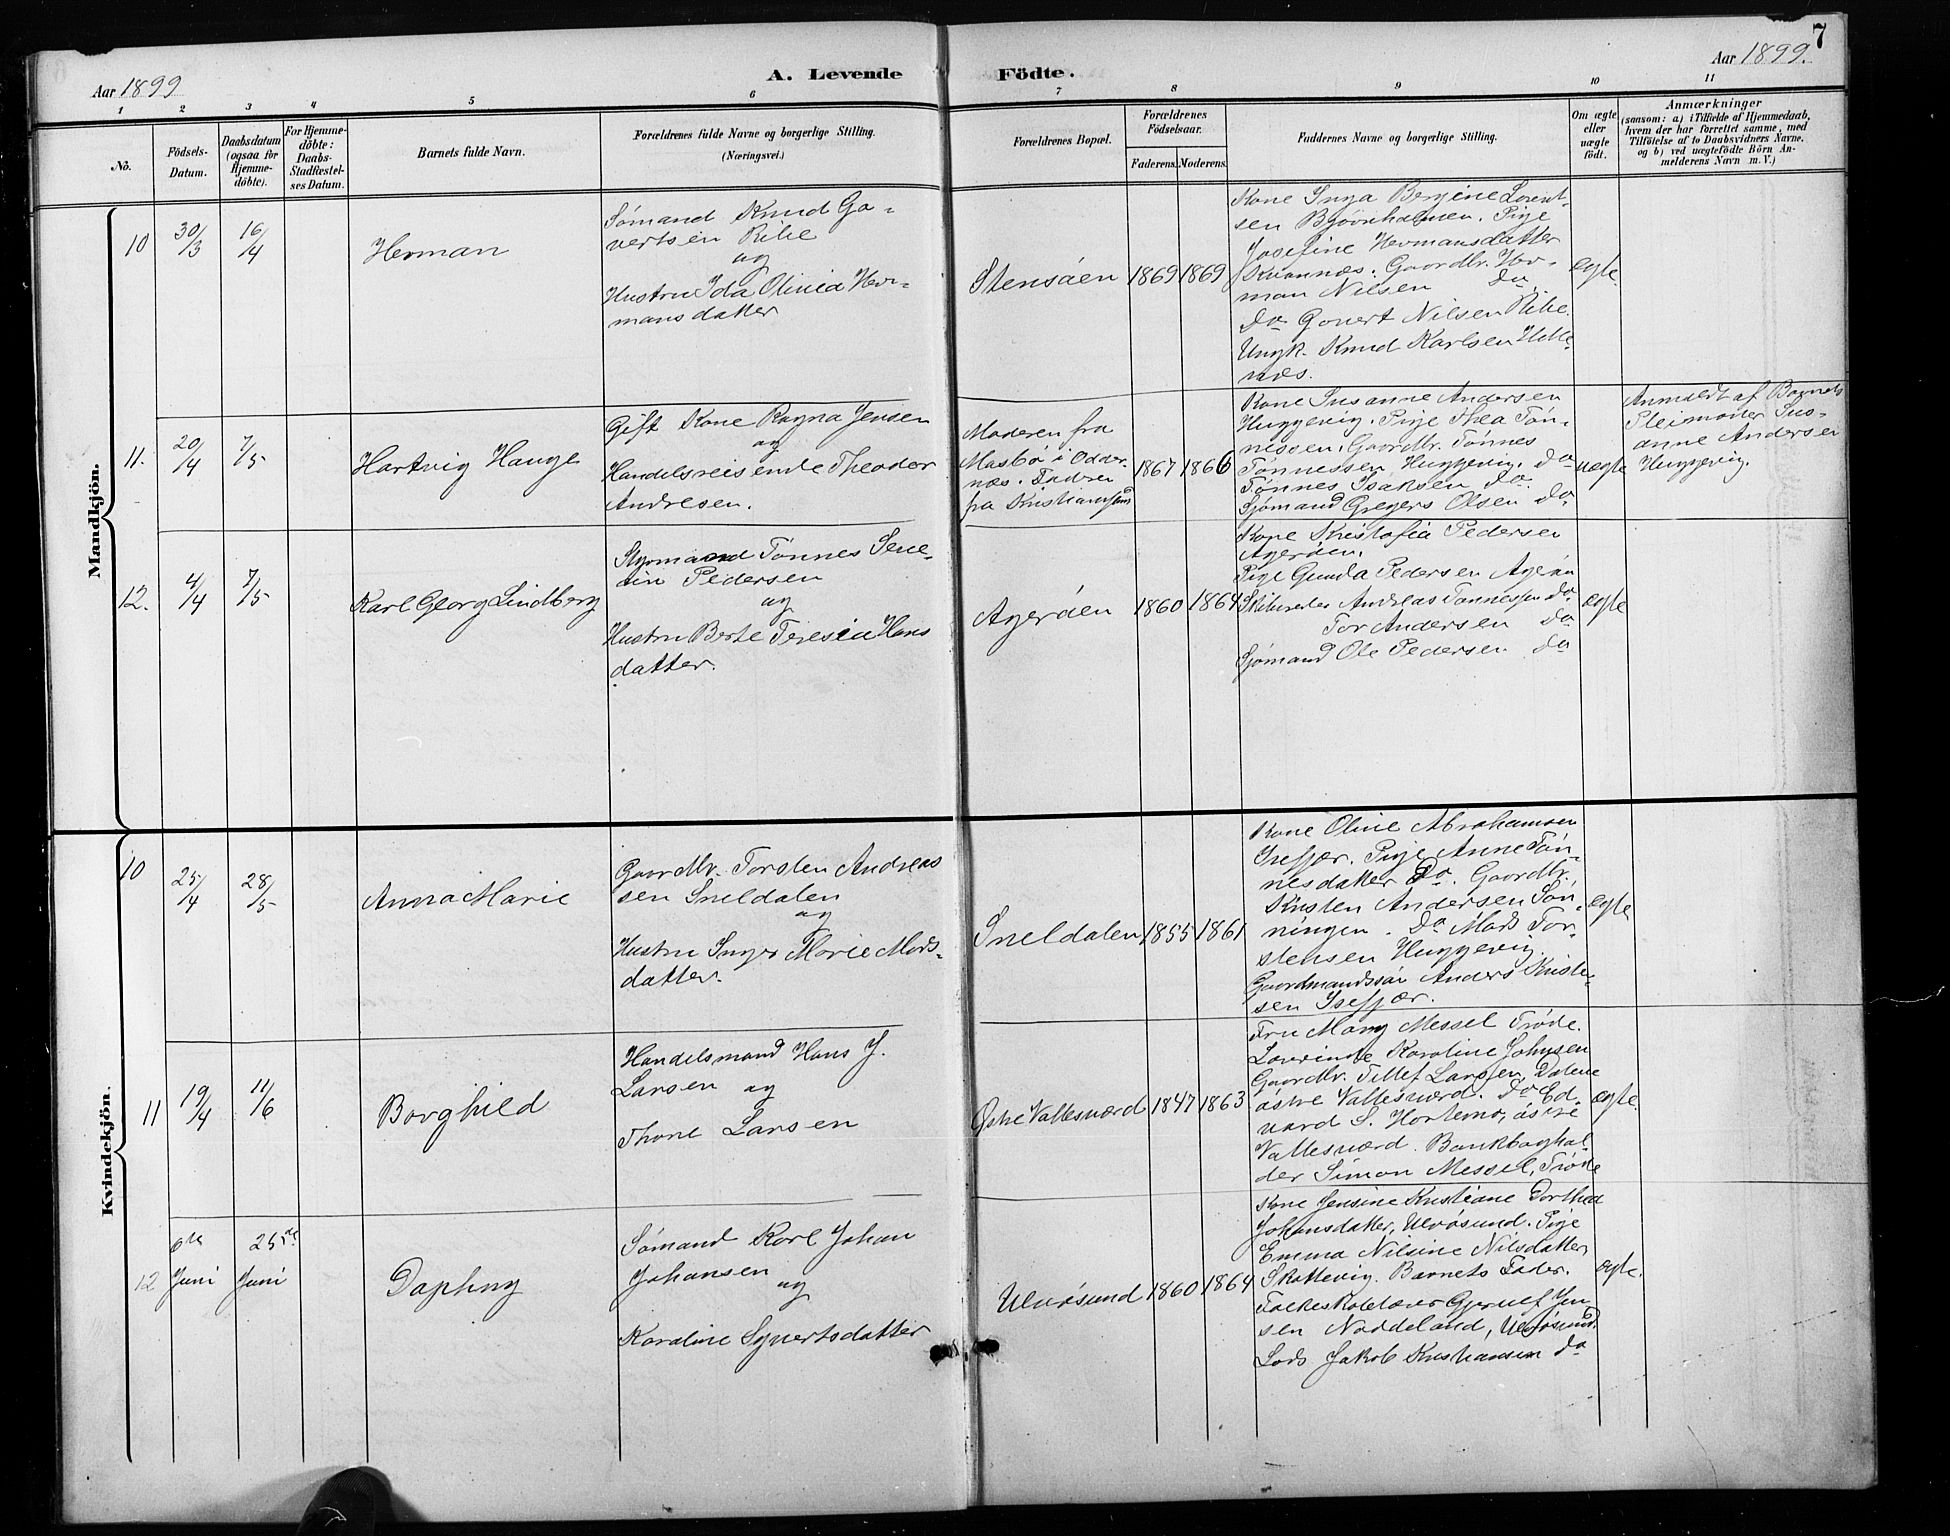 7
Aar 1899
A. Levende Födte.
Aar 1899.
1 2 3 4 5 6 7 8 9 10 11
No.
Födsels-
Datum.
Daabsdatum
(ogsaa for
Hjemme-
döbte).
For Hjemme-
döbte:
Daabs-
Stadfæstel-
ses Datum.
Barnets fulde Navn.
Forældrenes fulde Navne og borgerlige Stilling.
(Næringsvei.)
Forældrenes Bopæl.
Forældrenes
Födselsaar.
Faderens. Moderens.
Faddernes Navne og borgerlige Stilling.
Om ægte
eller
uægte
födt.
Anmærkninger
(saasom: a) i Tilfælde af Hjemmedaab,
hvem der har forrettet samme, med
Tilföielse af to Daabsvidners Navne.
og b) ved uægtefödte Börn An-
melderens Navn m. V.)
Mandkjön.
10
30/3
16/4
Herman
Sømand Knud Go-
vertsen Ribe
og
Hustru Ida Olivia Her-
mansdatter
Stensöen
1869 1869
Kone Inga Bergine Lorent-
sen Bjørnholmen. Pige
Josefine Hermansdatter
Kvannæs. Gaardbr. Her-
man Nilsen Do.
Do Govert Nilsen Ribe.
Ungk. Knud Karlsen Helle-
næs.
ægte.
11.
20/4
7/5
Hartvig Hauge
Gift Kone Ragna Jensen
og
Handelsreisende Theodor
Andresen.
Moderen fra
Mosbö i Odder-
næs. Faderen
fra Kristianssand
1867 1866
Kone Susanne Andersen
Huggevig. Pige Thea Tøn-
nessen. Gaardbr. Tønnes
Tønnessen Huggevig. Do
Tønnes Isaksen Do.
Sjømand Gregers Olsen Do
uægte
Anmeldt af Barnets
Pleimoder Sus-
anne Andersen
Huggevig.
12.
4/4
7/5
Karl Georg Lindberg
Styrmand Tønnes Seve-
rin Pedersen
og
Hustru Berte Teresia Hans
datter.
Agerøen
1860 1864
Kone Kristofia Pedersen
Agerøen.
Pige Gunda Pedersen Agerøen
Skibsreder Andreas Tønnessen Do.
Tor Andersen Do
Sjømand Ole Pedersen Do
ægte
Kvindekjön.
10
25/4
28/5
Anna Marie
Gaardbr. Torsten Andreas
sen Sneldalen
og
Hustru Inger Marie Mads-
datter.
Sneldalen
1855 1861
Kone Oline Abrahamsen
Isefjær. Pige Anne Tøn-
nesdatter Do. Gaardbr.
Kristen Andersen Tøn-
ningen. Do Mads Tor-
stensen Huggevig.
Gaardmandssøn Anders Kriste-
sen Isefjær.
ægte
11
19/4
11/6
Borghild
Handelsmand Hans J.
Larsen og
Thone Larsen
Østre Vallesværd
1847 1863
Fru Mary Messel Trøde.
Lærerinde Karoline Johnsen
Gaardbr. Tellef Larsen Dalene
østre Vallesværd. Do Ed-
vard S. Hortemo, østre
Vallesværd. Bankboghol-
der Simon Messel, Trøde
ægte.
12
6te
Juni
25de
Juni
Daphny
Sømand Karl Johan
Johansen
og
Karoline Syvertsdatter
Ulvøsund
1860 1864
Kone Jensine Kristiane Dorthea
Johansdatter, Ulvøsund. Pige
Emma Nilsine Nilsdatter,
Skottevig. Barnets Fader.
Folkeskolelærer Gjerulf Jen-
sen Noddeland, Ulvøsund.
Lods Jakob Kristiansen Do
ægte.